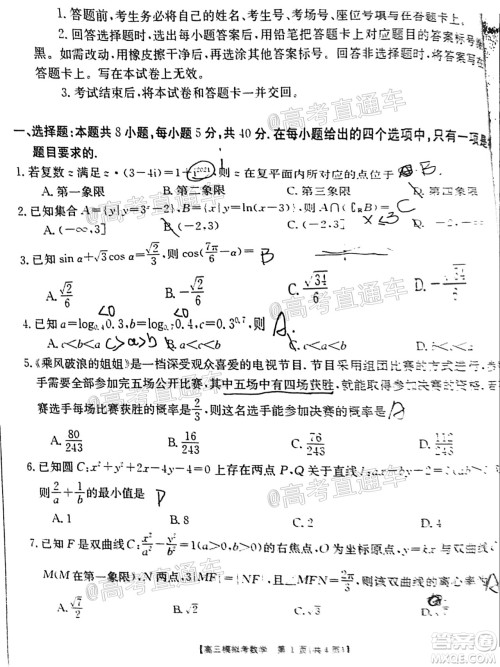 1. 答题前,考生务必将自己的姓名、考生号、考场号、座位号填写在答题卡上。
2. 回答选择题时,选出每小题答案后,用铅笔把答题卡上对应题目的答案标号涂
黑。如需改动,用橡皮擦干净后,再选涂其他答案标号。回答非选择题时,将答案写在
答题卡上。写在本试卷上无效。
3. 考试结束后,将本试卷和答题卡一并交回。
一、选择题:本题共 8 小题,每小题 5 分,共 40 分.在每小题给出的四个选项中,只有一项
题目要求的.
1. 若复数 z 满足 z·(3-4i)=1+i^2021,则 z 在复平面内所对应的点位于 B
A. 第一象限 B. 第二象限 C. 第三象限 D. 第四象限
2. 已知集合 A={y|y=3^x-2},B={x|y=ln(x-3)},则 A∩(∁RB)= C
A. (-∞,3] B. (-2,3) C. (-2,3] x≤3
3. 已知 sin α+√3cos α=√2/3,则 cos(7π/6-α)= B
A. √2/6 B. -√2/6 C. √34/6 D. -√34/6
<0 <0
4. 已知 a=log0.4 0.3,b=log0.7 0.4,c=0.3^0.7,则 A.
c>a>b
5.《乘风破浪的姐姐》是一档深受观众喜爱的电视节目.节目采用组团比赛的方式进行,参
手需要全部参加完五场公开比赛,其中五场中有四场获胜,就能
赛选手每场比赛获胜的概率是2/3,则这名选手能参加决赛的概率是 A
A. 80/243 B. 163/243 C. 76/243 D. 112/243
6. 已知圆 C:x²+y²+2x-4y-4=0 上存在两点 P、Q 关于直线 l:ax-by-2=0
则2/a+1/b的最小值是 D
A. 1 B. 8 C. 2 D. 4
7. 已知 F 是双曲线 C:x²/a²-y²/b²=1(a>0,b>0)的右焦点,O 为坐标原点,y=kx 与双曲线
M(M 在第一象限),N 两点,3|MF|=|NF|,∠MFN=2π/3,则该双曲线的离心率为
A. √7/2 B. C. D.
【高三模拟考数学 第 1 页(共 4 页)】
@高考直通车
@高考直通车
@高考直通车
@高考直通车
答案圈